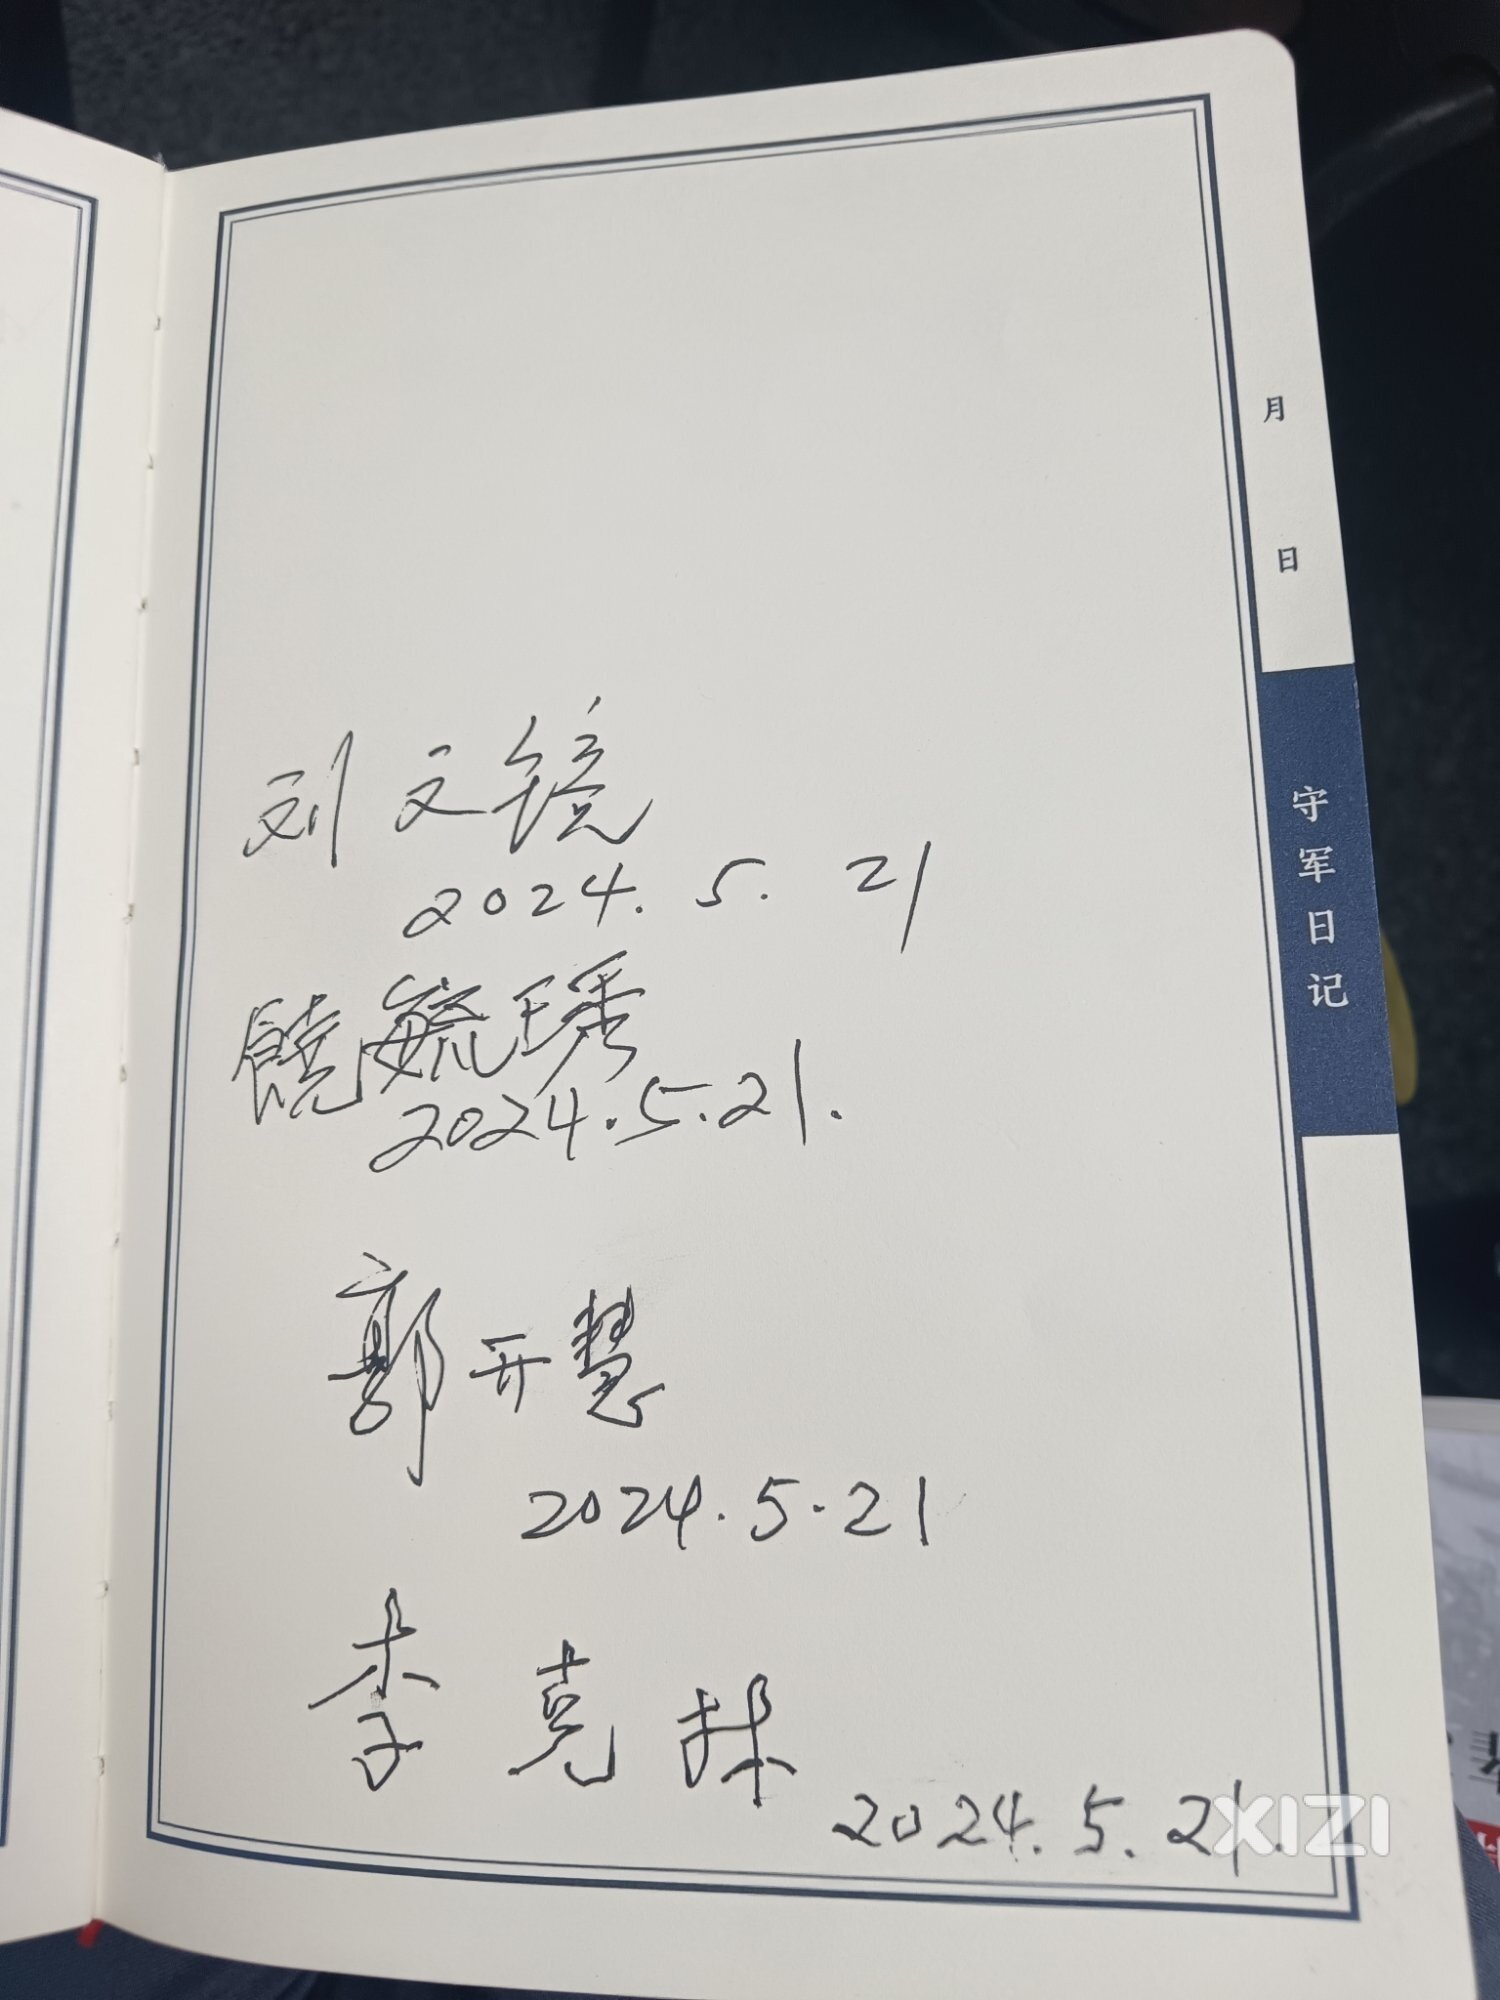 月
日
守军日记
刘文镜
2024. 5. 21
饶毓璠
2024.5.21.
郭开慧
2024.5.21
李克林
2024.5.21.
XIZI